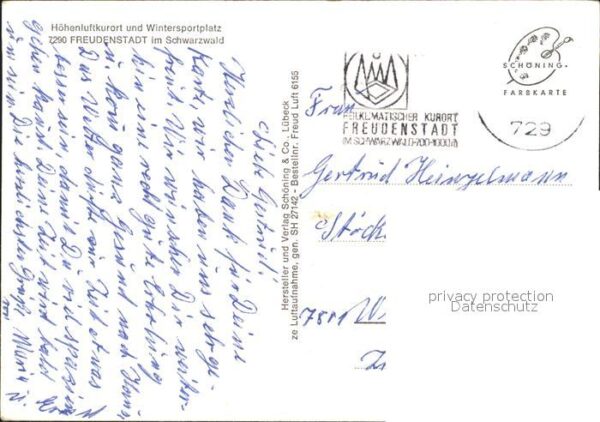 Höhenluftkurort und Wintersportplatz
7290 FREUDENSTADT im Schwarzwald
Herzlichen Dank für Deine
Karte, wir haben uns sehr ge-
freut. Wir wünschen Dir weiter-
hin eine recht gute Erholung
u. komm ganz gesund nach
Das Wetter dürfte zur Zeit etwas
besser sein, damit Du viel spazieren
gehen kannst. Deine Zeit wird bald
um sein. Die herzlichsten Grüße Maria u.
Hersteller und Verlag Schöning & Co. · Lübeck
ze Luftaufnahme, gen. SH 27142 - Bestellnr. Freud Luft 6155
HEILKLIMATISCHER KURORT
FREUDENSTADT
IM SCHWARZWALD·700-1000M
SCHÖNING·
FARBKARTE
729
Frau
Gertrud Heinzelmann
Stöck
privacy protection
Datenschutz